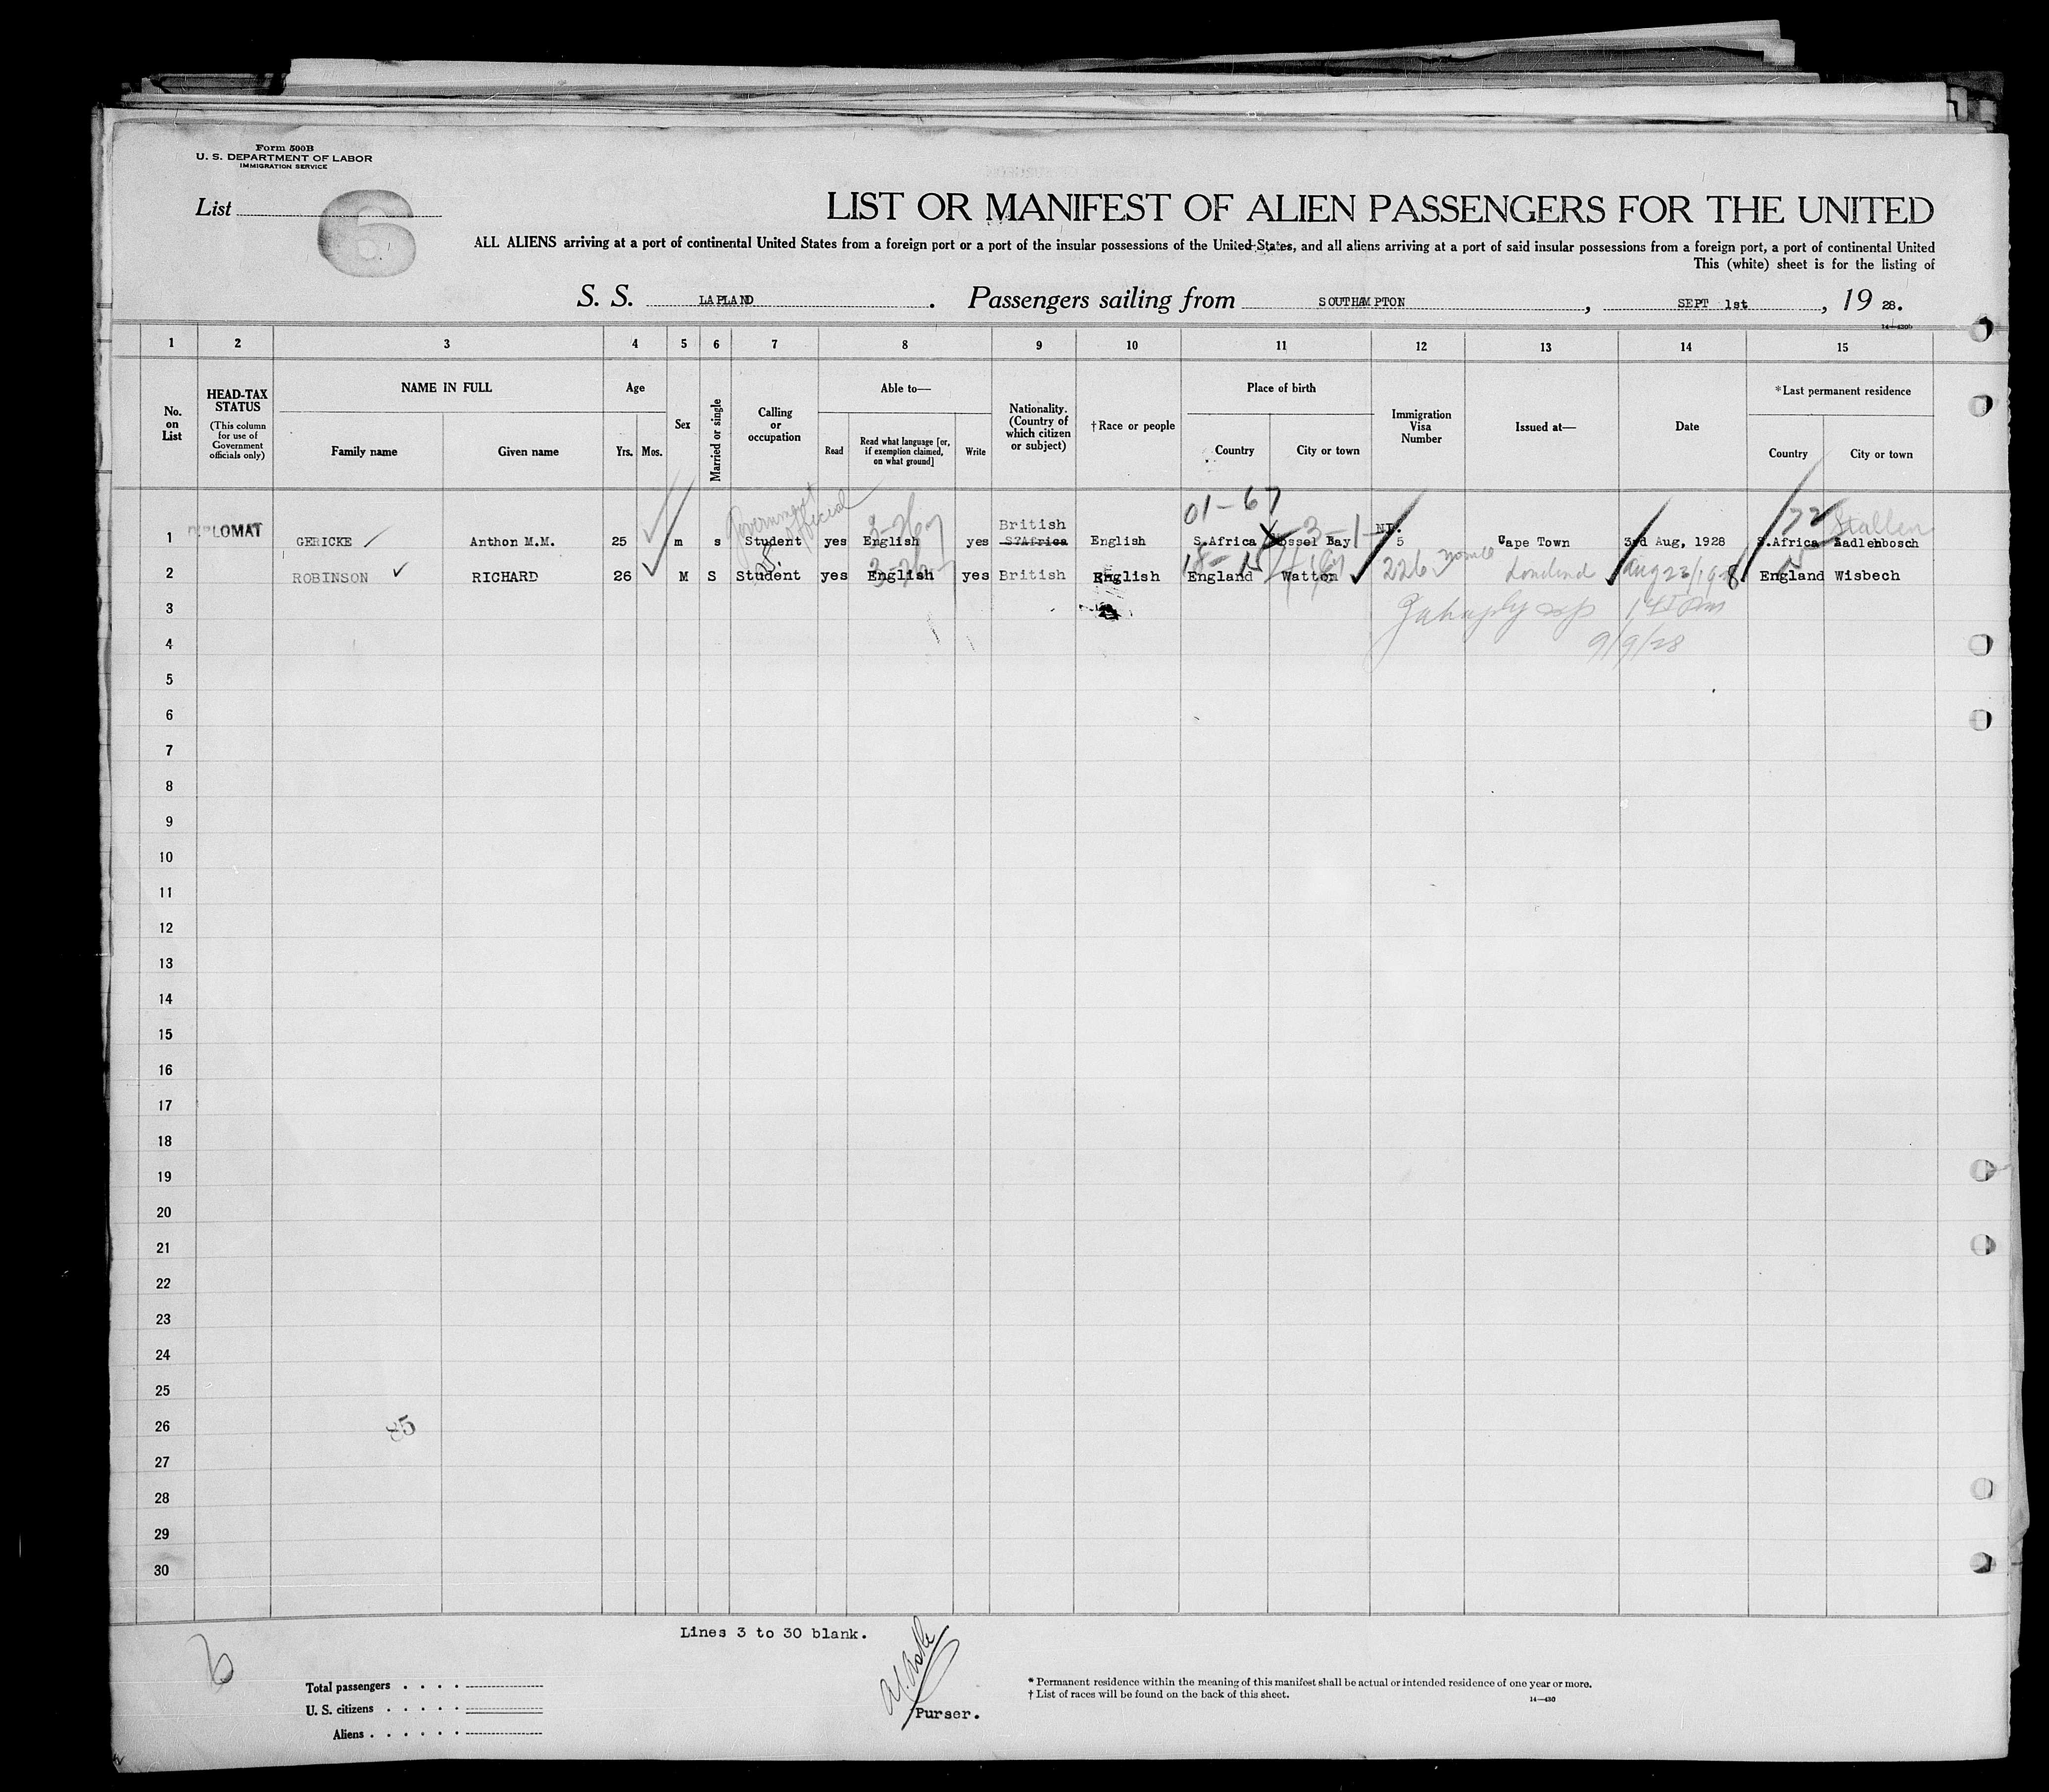 Form 500B
U. S. DEPARTMENT OF LABOR
IMMIGRATION SERVICE
List 6
LIST OR MANIFEST OF ALIEN PASSENGERS FOR THE UNITED
ALL ALIENS arriving at a port of continental United States from a foreign port or a port of the insular possessions of the United States, and all aliens arriving at a port of said insular possessions from a foreign port, a port of continental United
This (white) sheet is for the listing of
S. S. LAPLAND. Passengers sailing from SOUTHAMPTON, SEPT 1st, 19 28.
14—430b
1 2 3 4 5 6 7 8 9 10 11 12 13 14 15
No. on List
HEAD-TAX STATUS
(This column for use of Government officials only)
NAME IN FULL
Family name Given name
Age
Yrs. Mos.
Sex
Married or single
Calling or occupation
Able to—
Read
Read what language [or, if exemption claimed, on what ground]
Write
Nationality. (Country of which citizen or subject)
†Race or people
Place of birth
Country City or town
Immigration Visa Number
Issued at—
Date
*Last permanent residence
Country City or town
Government official 01-67 British 72 Stellen
1 DIPLOMAT GERICKE ✓ Anthon M.M. 25 m s Student yes English yes S.Africa English S.Africa Mossel Bay 5 Cape Town 3rd Aug, 1928 S.Africa
2 ROBINSON ✓ RICHARD 26 ✓ M S Student yes English yes British English England Watton 226 London Aug 23/1928 England Wisbech
3
9/9/28
4
5
6
7
8
9
10
11
12
13
14
15
16
17
18
19
20
21
22
23
24
25
26
85
27
28
29
30
Lines 3 to 30 blank.
6
Purser.
Total passengers
U. S. citizens
Aliens
* Permanent residence within the meaning of this manifest shall be actual or intended residence of one year or more.
† List of races will be found on the back of this sheet.
14—430